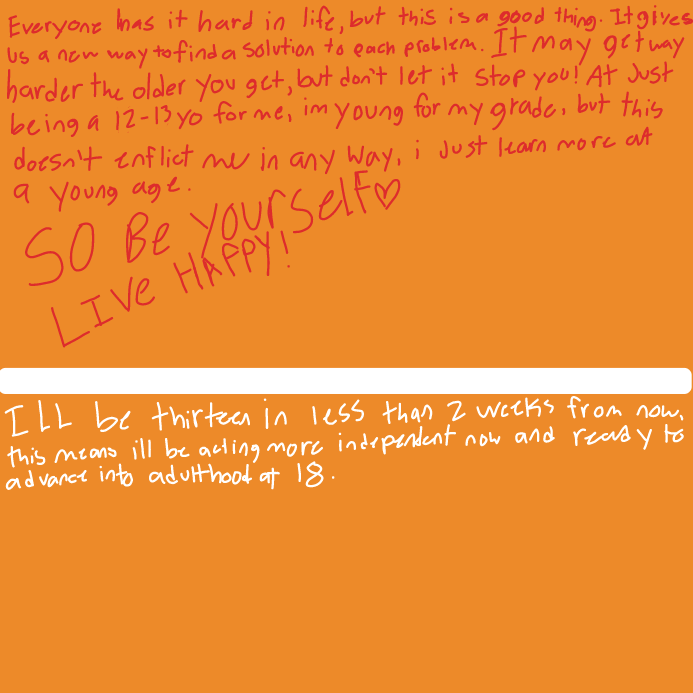 Everyone has it hard in life, but this is a good thing. It gives
us a new way to find a solution to each problem. It may get way
harder the older you get, but don't let it stop you! At Just
being a 12-13 yo for me, im young for my grade, but this
doesn't enflict me in any way, i Just learn more at
a young age.
SO Be yourself♡
LIVe HAPPY!
ILL be thirteen in less than 2 weeks from now,
this means ill be acting more independent now and ready to
advance into adulthood at 18.